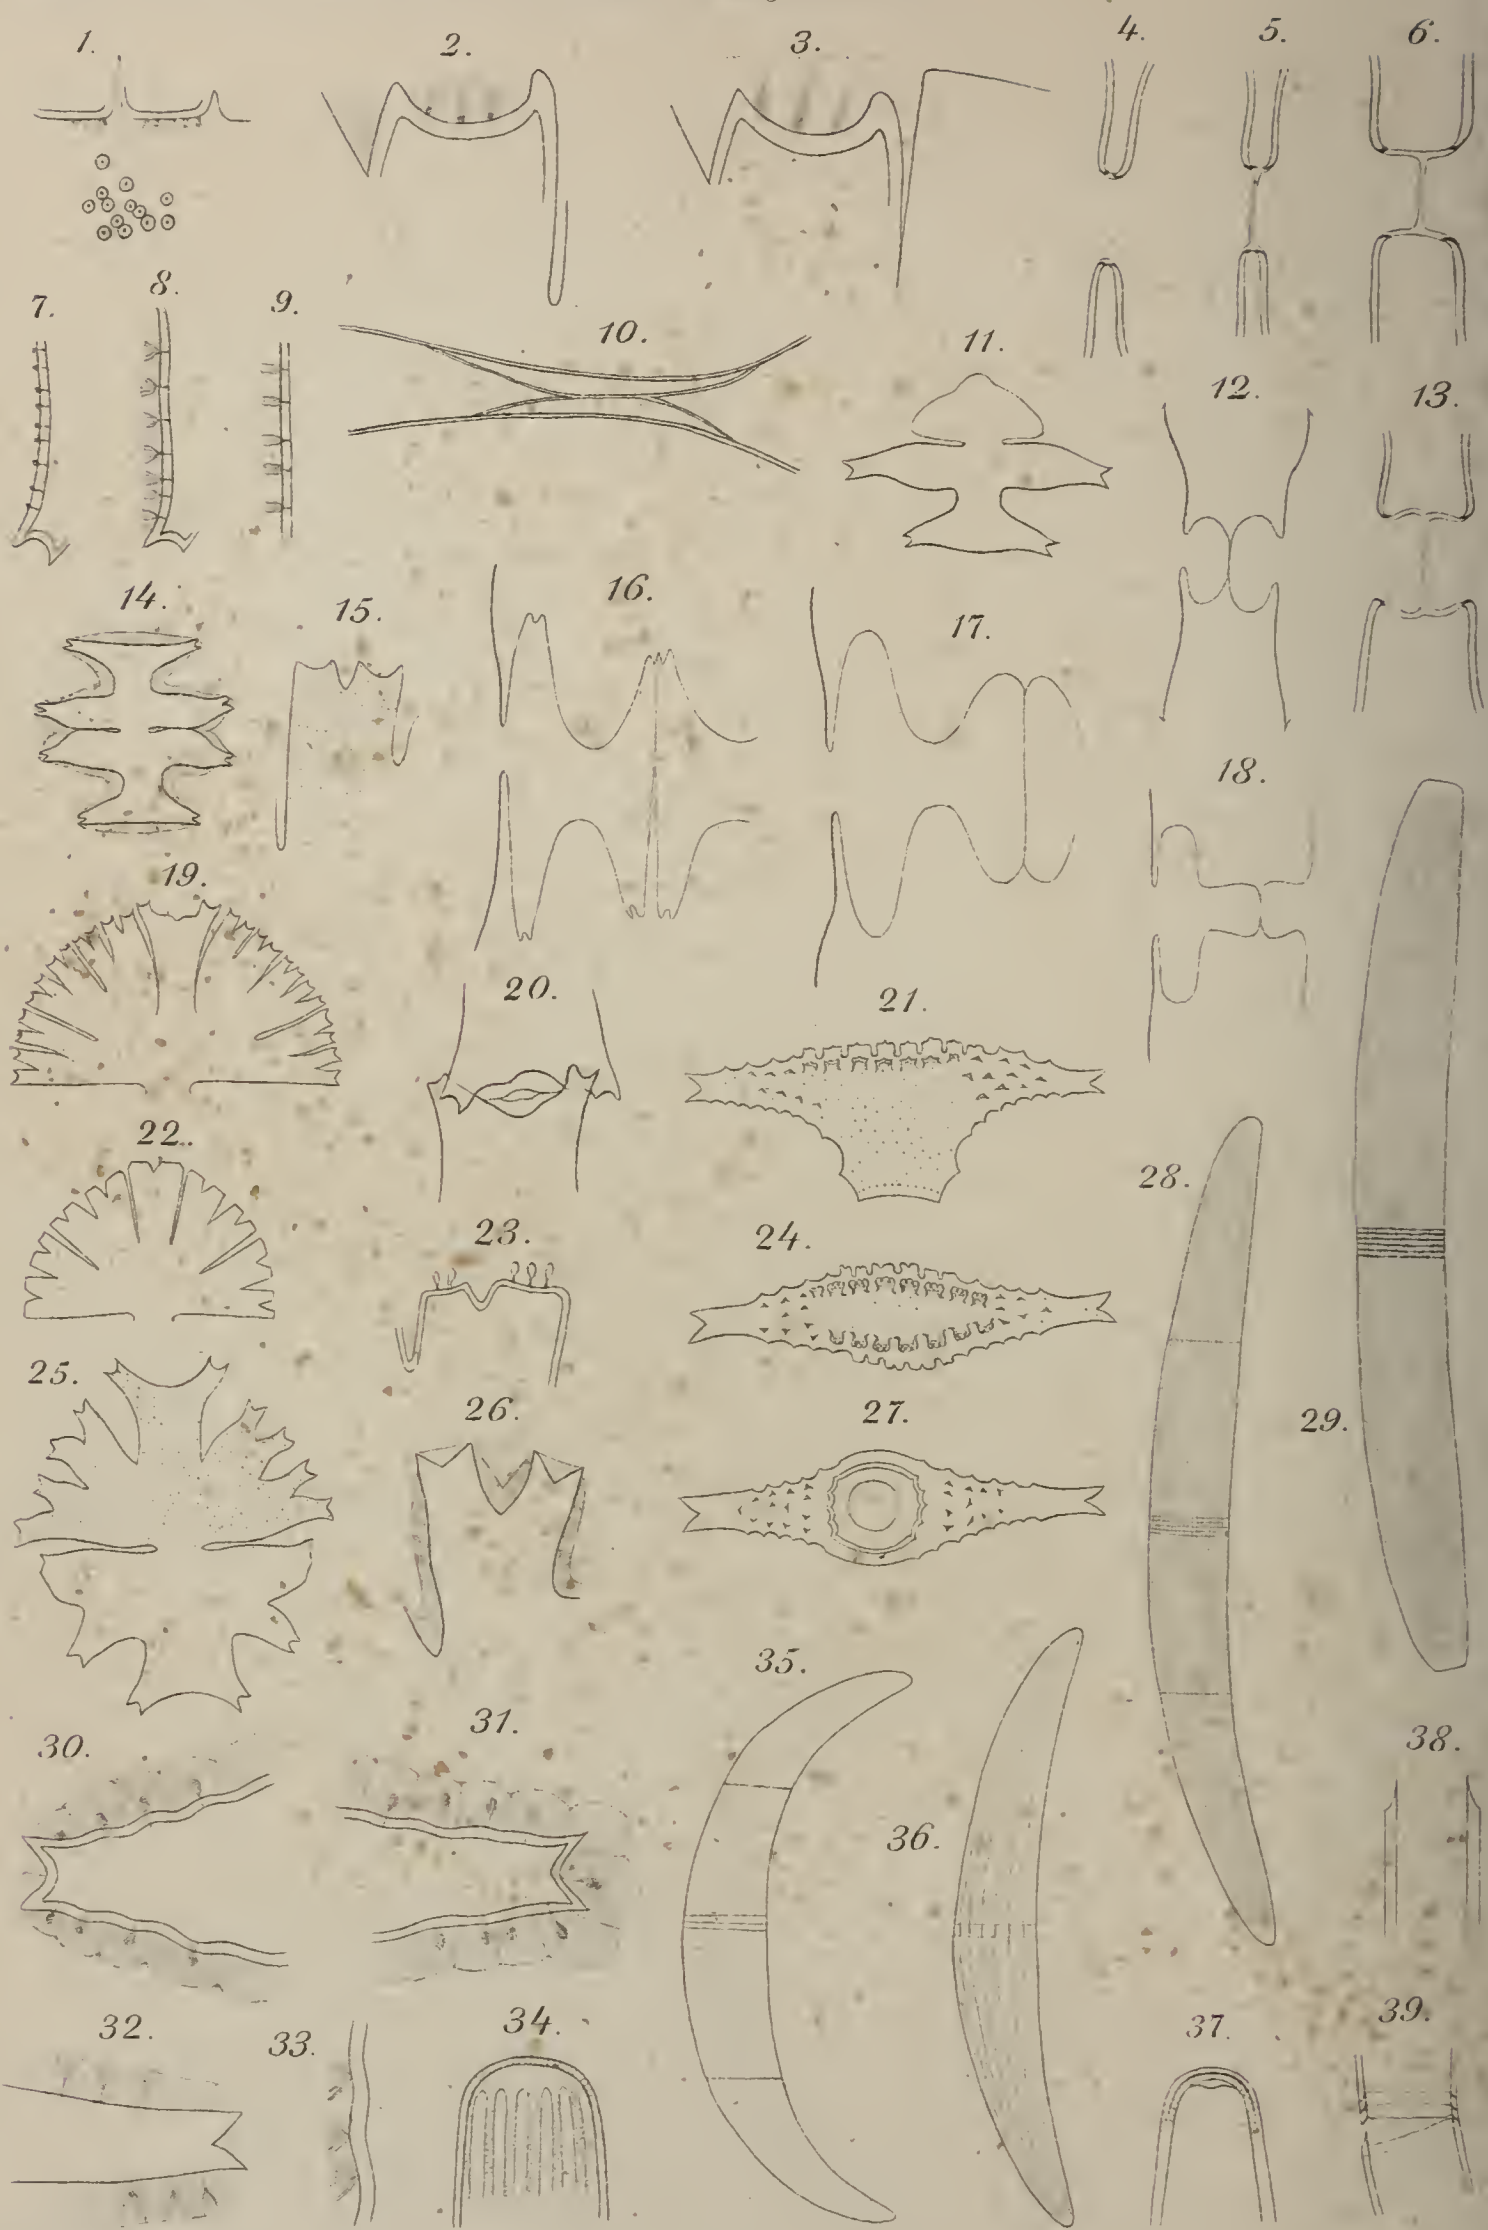 1. 2. 3. 4. 5. 6.
7. 8. 9. 10. 11. 12. 13.
14. 15. 16. 17. 18.
19. 20. 21.
22. 23. 24. 28.
25. 26. 27. 29.
30. 31. 35. 36. 38.
32. 33. 34. 37. 39.